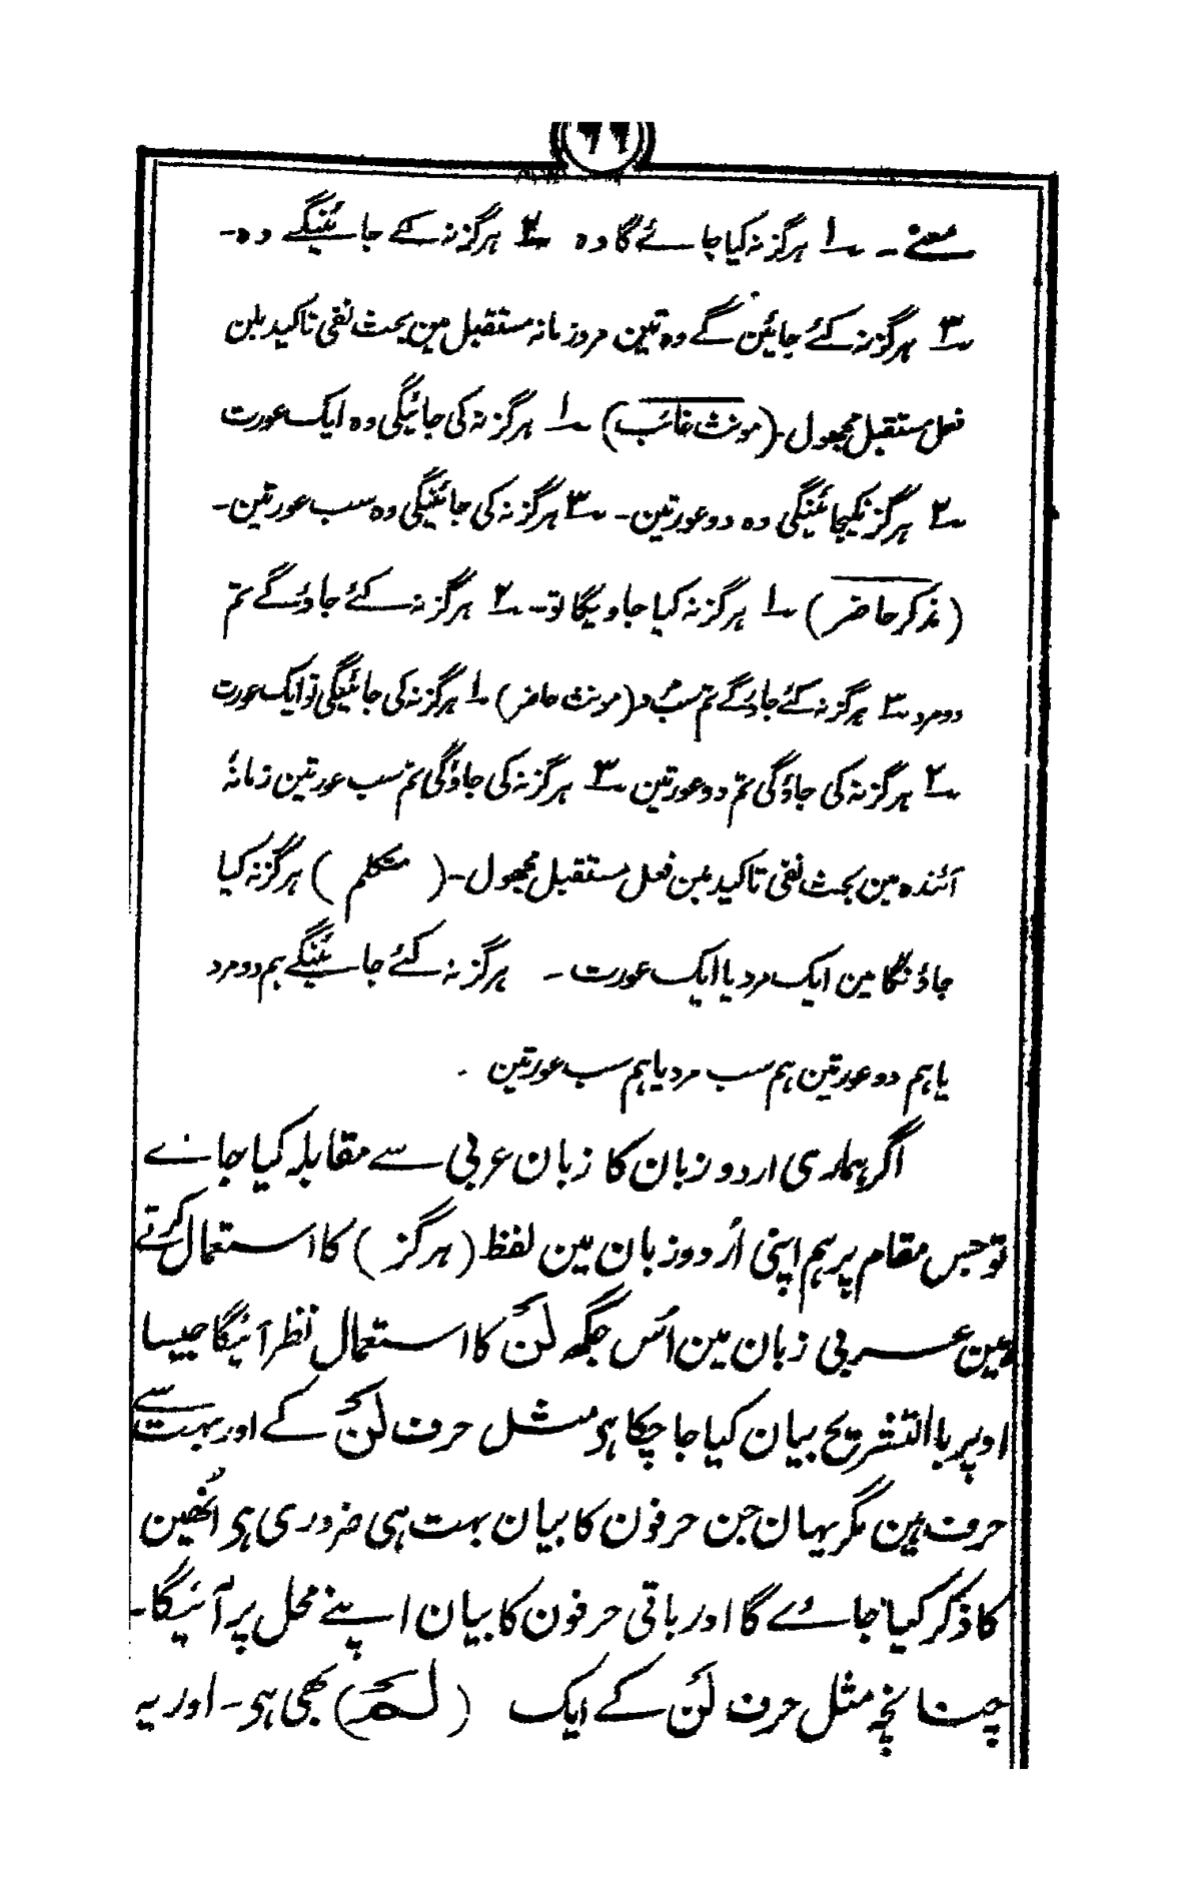 ۶۶
معنے ۔ ۱؎ ہرگز نہ کیا جائے گا وہ ۲؎ ہرگز نہ کئے جائینگے وہ۔
۳؎ ہرگز نہ کئے جائین گے وہ تین مرد زمانہ مستقبل مین بحث نفی تاکید بلن
فعل مستقبل مجہول۔ (مونث غائب) ۱؎ ہرگز نہ کی جائیگی وہ ایک عورت
۲؎ ہرگز نکیجائینگی وہ دو عورتین۔ ۳؎ ہرگز نہ کی جائینگی وہ سب عورتین۔
(مذکر حاضر) ۱؎ ہرگز نہ کیا جاویگا تو۔ ۲؎ ہرگز نہ کئے جاؤگے تم
دو مرد ۳؎ ہرگز نہ کئے جاؤگے تم سب مرد (مونث حاضر) ۱؎ ہرگز نہ کی جائیگی تو ایک عورت
۲؎ ہرگز نہ کی جاؤگی تم دو عورتین ۳؎ ہرگز نہ کی جاؤگی تم سب عورتین زمانۂ
آئندہ مین بحث نفی تاکید بلن فعل مستقبل مجہول۔ ( متکلم ) ہرگز نہ کیا
جاؤنگا مین ایک مرد یا ایک عورت ۔ ہرگز نہ کئے جائینگے ہم دو مرد
یا ہم دو عورتین ہم سب مرد یا ہم سب عورتین ۔
اگر ہماری اردو زبان کا زبان عربی سے مقابلہ کیا جانے
تو جس مقام پر ہم اپنی اُردو زبان مین لفظ (ہرگز) کا استعمال کرتے
ہین عربی زبان مین اُس جگہ لَنْ کا استعمال نظر آئیگا جیسا
اوپر باالتشریح بیان کیا جا چکا ہی مثل حرف لَنْ کے اور بہت سے
حرف ہین مگر یہان جن حرفون کا بیان بہت ہی ضروری ہی اُنھین
کا ذکر کیا جائے گا اور باقی حرفون کا بیان اپنے محل پر آئیگا۔
چنانچہ مثل حرف لَنْ کے ایک (لَمْ) بھی ہی۔ اور یہ